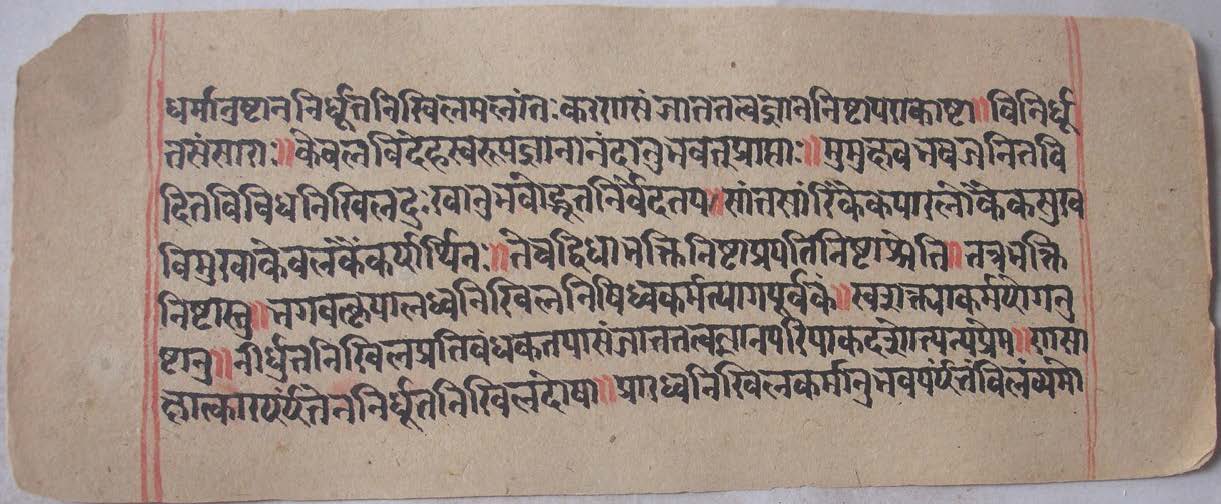 धर्मानुष्टाननिर्धूतनिखिलमलांतःकरणसंजाततत्वज्ञाननिष्टापराकाष्टा॥विनिर्धू
तसंसाराः॥केवलविदेहस्वरूपज्ञानानंदानुभवत्तप्राप्ताः॥मुमुक्षवभवजनितवि
दितविविधनिखिलदुःखानुभवोद्भूतनिर्वेदतप॥सांत्तसांरिकैकपारलोकैकसुख
विमुखाकेवलकैंकर्यार्थिनः॥तेचद्विधाभक्तिनिष्टाप्रपतिनिष्टाश्चेति॥तत्रभक्ति
निष्टास्तु॥भगवत्कृपालध्वनिखिलनिषिध्वकर्मत्यागपूर्वकं॥स्वशक्तयाकर्मयोगनु
ष्टानु॥नीर्धूतनिखिलप्रतिबंधकतपासंजाततत्वज्ञानपरिपाकदशोत्पन्यप्रेम॥णासा
क्षात्कारपर्यंतेननिर्धूतनिखिलदोषा॥प्रारध्वनिखिलकर्मानुभवपर्यंत्तंविलंव्यमो